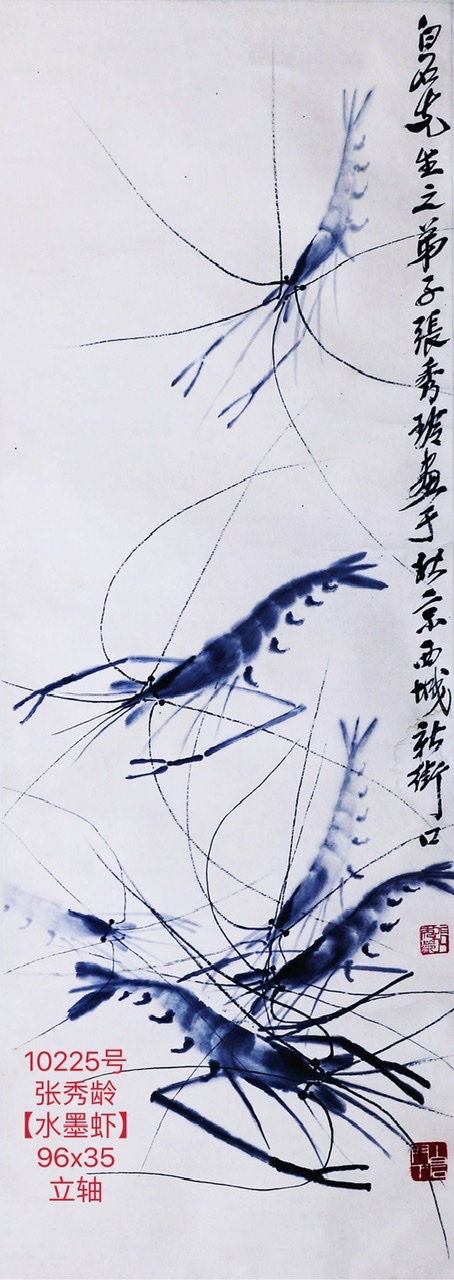 白石先生之弟子張秀齡畫于北京西城新街口
10225号
张秀龄
【水墨虾】
96x35
立轴